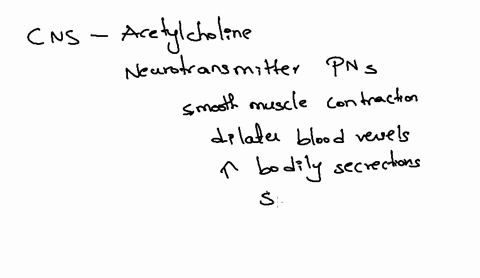 CNS - Acetylcholine
Neurotransmitter PNS
smooth muscle contraction
dilates blood vessels
↑ bodily secrections
S